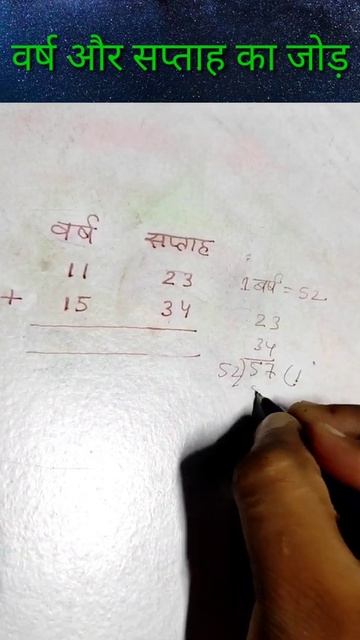 वर्ष और सप्ताह का जोड़
वर्ष सप्ताह
11 23
+ 15 34
1 वर्ष = 52
23
34
52)57(1